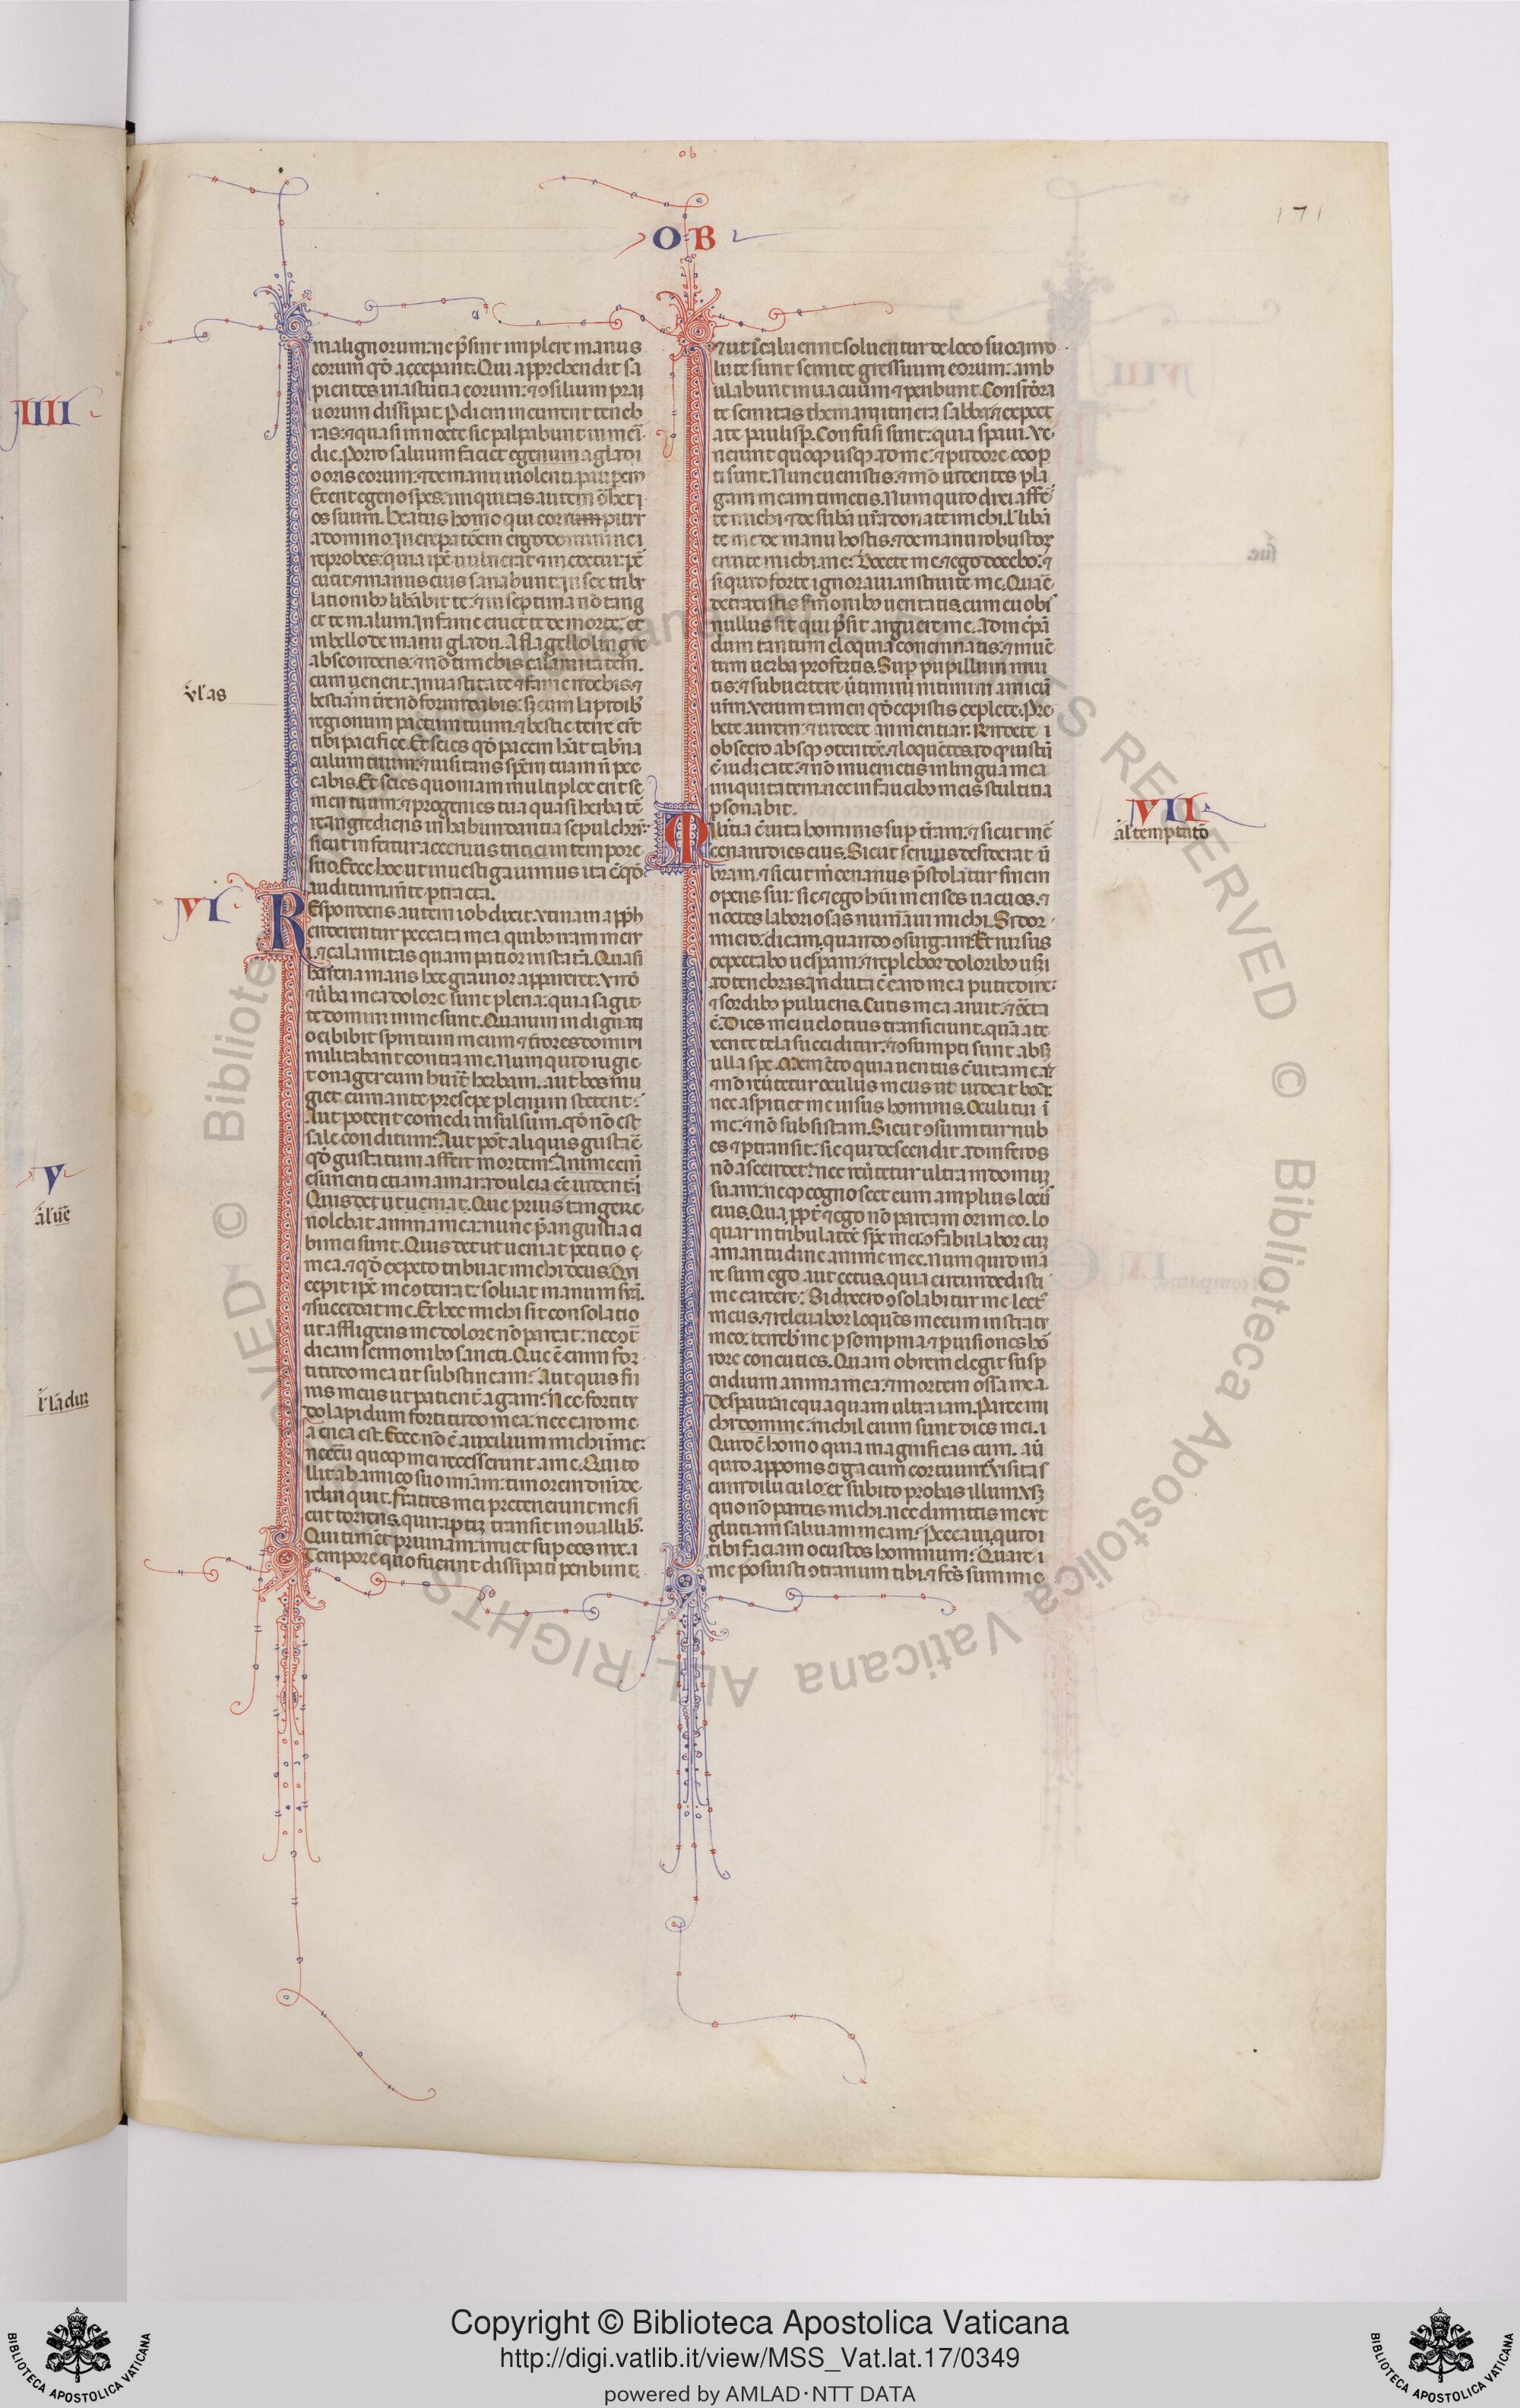 ob
171
OB
malignorum: ne p̄sint implere manus
eorum qđ ceperant. Qui apprehendit sa
pientes in astutia eorum: ⁊ ↄsilium praū
uorum dissipat. P diem incurrent teneb
ras: ⁊ quasi in nocte sic palpabunt in meri
die. Porro saluum faciet egenum a gladi
o oris eorum: ⁊ de manu uiolenti pauperem
Et erit egeno spes: iniquitas autem
os suum. Beatus homo qui corripitur
a domino. Increpatōem ergo domini nei
reprobes: quia ipē uulnerat ⁊ medetur: pē
cutit ⁊ manus eius sanabunt. In sex tribu
lationibꝰ libābit te: ⁊ in septima nō tang
et te malum. In fame eruet te de morte: et
in bello de manu gladii. A flagello lingue
absconderis: ⁊ nō timebis calamitatem.
cum uenerit. In uastitate ⁊ fame ridebis: ⁊
bestiam tr̄e nō formidabis. Sꝫ cum lapidibꝰ
regionum pactum tuum: ⁊ bestie terre erūt
tibi pacifice. Et scies qđ pacem hāt tabn̄a
culum tuum: ⁊ uisitans spēm tuam ñ pec
cabis. Et scies quoniam multiplex erit se
men tuum: ⁊ progenies tua quasi herba tē
re. Ingredieris in habundantia sepulchrū:
sicut infertur aceruus tritici in tempore
suo. Ecce hoc ut inuestigauimus ita ē: qđ
auditum mēte ptracta.
vľ as
VI
REspondens autem iob dixit. Vtinam appēn
derentur peccata mea quibꝰ iram merū
i: ⁊ calamitas quam patior in statera. Quasi
harena maris hec grauior appareret. Vnđ
⁊ ūba mea dolore sunt plena: quia sagit
te domini in me sunt. Quarum indignati
o ebibit spiritum meum ⁊ t̄rores domini
militabant contra me. Numquid rugie
t onager cum habuerit herbam: aut bos mu
giet cum ante presepe plenum steterit:
Aut poterit comedi insulsum: qđ nō est
sale conditum: Aut pōt aliquis gustare
qđ gustatum affert mortem. Anime enī
esurienti etiam amara dulcia eē uidentur
Quis det ut ueniat. Que prius tangere
nolebat anima mea: nunc p̄ angustia ci
bi mei sunt. Quis det ut ueniat petitio
mea: ⁊ qđ expecto tribuat michi deus. Qui
cepit ipē me ↄterat: soluat manum suā.
⁊ succidat me. Et hec michi sit consolatio
ut affligens me dolore nō parcat: nec ↄt̄
dicam sermonibꝰ sancti. Que ē enim for
titudo mea ut sustineam: Aut quis fi
nis meus ut patienter agam: Nec fortitu
do lapidum fortitudo mea: nec caro me
a enea est. Ecce nō ē auxilium michi in me:
necēii quoqꝫ mei recesserunt a me. Qui to
llit ab amico suo miām: timorem dnī de
relinquit. Fratres mei preterierunt me si
cut torrens: qui raptim transit in ↄuallibꝰ.
Qui timēt pruinam: irruet sup eos nix. i
Tempore quo fuerint dissipati peribunt:
⁊ ut īcaluerint soluentur de loco suo. Inuo
lute sunt semite gressuum eorum: amb
ulabunt in uacuum ⁊ peribunt. Consid̄a
te semitas theman: itinera sabba: ⁊ expect
ate paulisper. Confusi sunt: quia spaui. Ve
nerunt quoqꝫ usqꝫ ad me: ⁊ pudore coop
ti sunt. Nunc uenistis: ⁊ mō uidentes pla
gam meam timetis. Numquid dixi affer
te michi ⁊ de subā ur̄a donate michi. ľ libā
te me de manu hostis: ⁊ de manu robustoꝝ
eruite michi me: Docete me ⁊ ego docebo: ⁊
si quid forte ignoraui instruite me. Quare
detraxistis sermonibꝰ ueritatis: cum ex uobis
nullus sit qui p̄sit arguere me. Ad increpā
dum tantum eloquia concinnatis: ⁊ in uē
tum uerba profertis. Sup pupillum irrui
tis: ⁊ subuertere nitimini nitimini amicū
ur̄m. Verum tamen qđ cepistis explete. Pre
bete aurem: ⁊ uidete an mentiar. Rñdete i
obsecro absqꝫ ↄtentōe: ⁊ loquētes id q iustū
ē iudicate: ⁊ nō inuenietis in lingua mea
iniquitatem: nec in faucibꝰ meis stultitia
psonabit.
VII
al̄ temptatō
Militia ē uita hominis sup tr̄am: ⁊ sicut mē
cenarii dies eius. Sicut seruus desiderat ū
bram: ⁊ sicut m̄cenarius p̄stolatur finem
operis sui: sic ⁊ ego hūi menses uacuos: ⁊
noctes laboriosas nūaui michi. Si dor
miero: dicam quando ↄsurgam: Et rursus
expectabo uesp̄am: ⁊ replebor doloribꝰ usqꝫ
ad tenebras. Induta ē caro mea putredine:
⁊ sordibꝰ pulueris. Cutis mea aruit: ⁊ ↄt̄cta
ē. Dies mei uelotius transierunt: quā a te
xente tela succiditur: ⁊ ↄsumpti sunt absqꝫ
ulla spe. Memēto quia uentus ē uita mea:
⁊ nō reūtetur oculus meus ut uideat bona.
nec aspitiet me uisus hominis. Oculi tui ī
me: ⁊ nō subsistam. Sicut ↄsumitur nub
es ⁊ ptransit: sic qui descendit ad inferos
nō ascendet: nec reūtetur ultra in domum
suam: neqꝫ cognoscet eum amplius locus
eius. Quapp̄t ⁊ ego nō parcam ori meo. lo
quar in tribulatōe sp̄c mei: ↄfabulabor cum
amaritudine anime mee. Numquid ma
re sum ego aut cetus: quia circumdedisti
me carcere: Si dixero ↄsolabitur me lectꝰ
meus: ⁊ releuabor loquēs mecum in stratu
meo: terrebis me p sompnia: ⁊ p uisiones hor
rore concuties. Quam obrem elegit susp
endium anima mea: ⁊ mortem ossa mea
Desperaui nequaquam ultra iam. Parce mi
chi domine: nichil enim sunt dies mei. i
Quid ē homo quia magnificas eum. aū
quid apponis erga eum cor tuum: Visitas
eum diluculo: et subito probas illum: Vsqꝫ
quo nō parcis michi: nec dimittis me ut
glutiam saliuam meam: Peccaui: quid i
tibi faciam o custos hominum: Quare i
me posuisti ↄtrarium tibi: ⁊ fcs̄ sum mi
IIII
V
al̄ uē
Copyright © Biblioteca Apostolica Vaticana
http://digi.vatlib.it/view/MSS_Vat.lat.17/0349
powered by AMLAD·NTT DATA
BIBLIOTECA APOSTOLICA VATICANA
BIBLIOTECA APOSTOLICA VATICANA